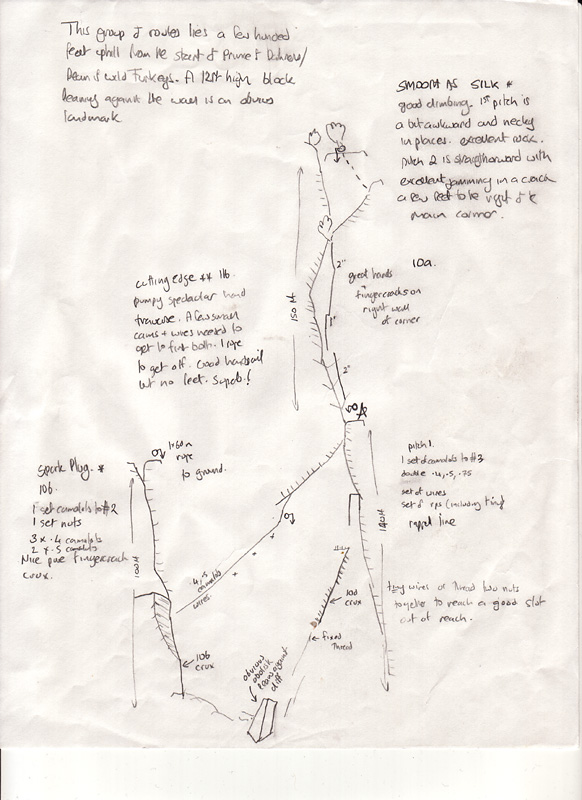 This group of routes lies a few hundred
feet uphill from the start of Prince of Darkness/
Dean's wild Turkeys. A 12ft high block
leaning against the wall is an obvious
landmark
SMOOTH AS SILK *
good climbing. 1st pitch is
a bit awkward and necky
in places. excellent rock.
pitch 2 is straightforward with
excellent jamming in a crack
a few feet to the right of the
main corner.
10a.
2"
great hands
+ fingercracks on
right wall
of corner
1"
2"
150 ft
cutting edge ** 11b.
pumpy spectacular hand
traverse. A few small
cams + wires needed to
get to first bolt. 1 rope
to get off. Good handrail
but no feet. Superb!
1·60m
rope
to ground.
Spark Plug. *
10b.
1 set camalots to #2
1 set nuts
3 x .4 camalots
2 x .5 camalots
Nice pure fingercrack
crux.
100ft
10b
crux
.4, .5
camalots
wires
pitch 1.
1 set of camalots to #3
double .4, .5, .75
set of wires
set of rps (including tiny)
rappel line
140ft
tiny wires or thread two nuts
together to reach a good slot
out of reach.
10d
crux
fixed
thread
obvious
obelisk
leans against
cliff